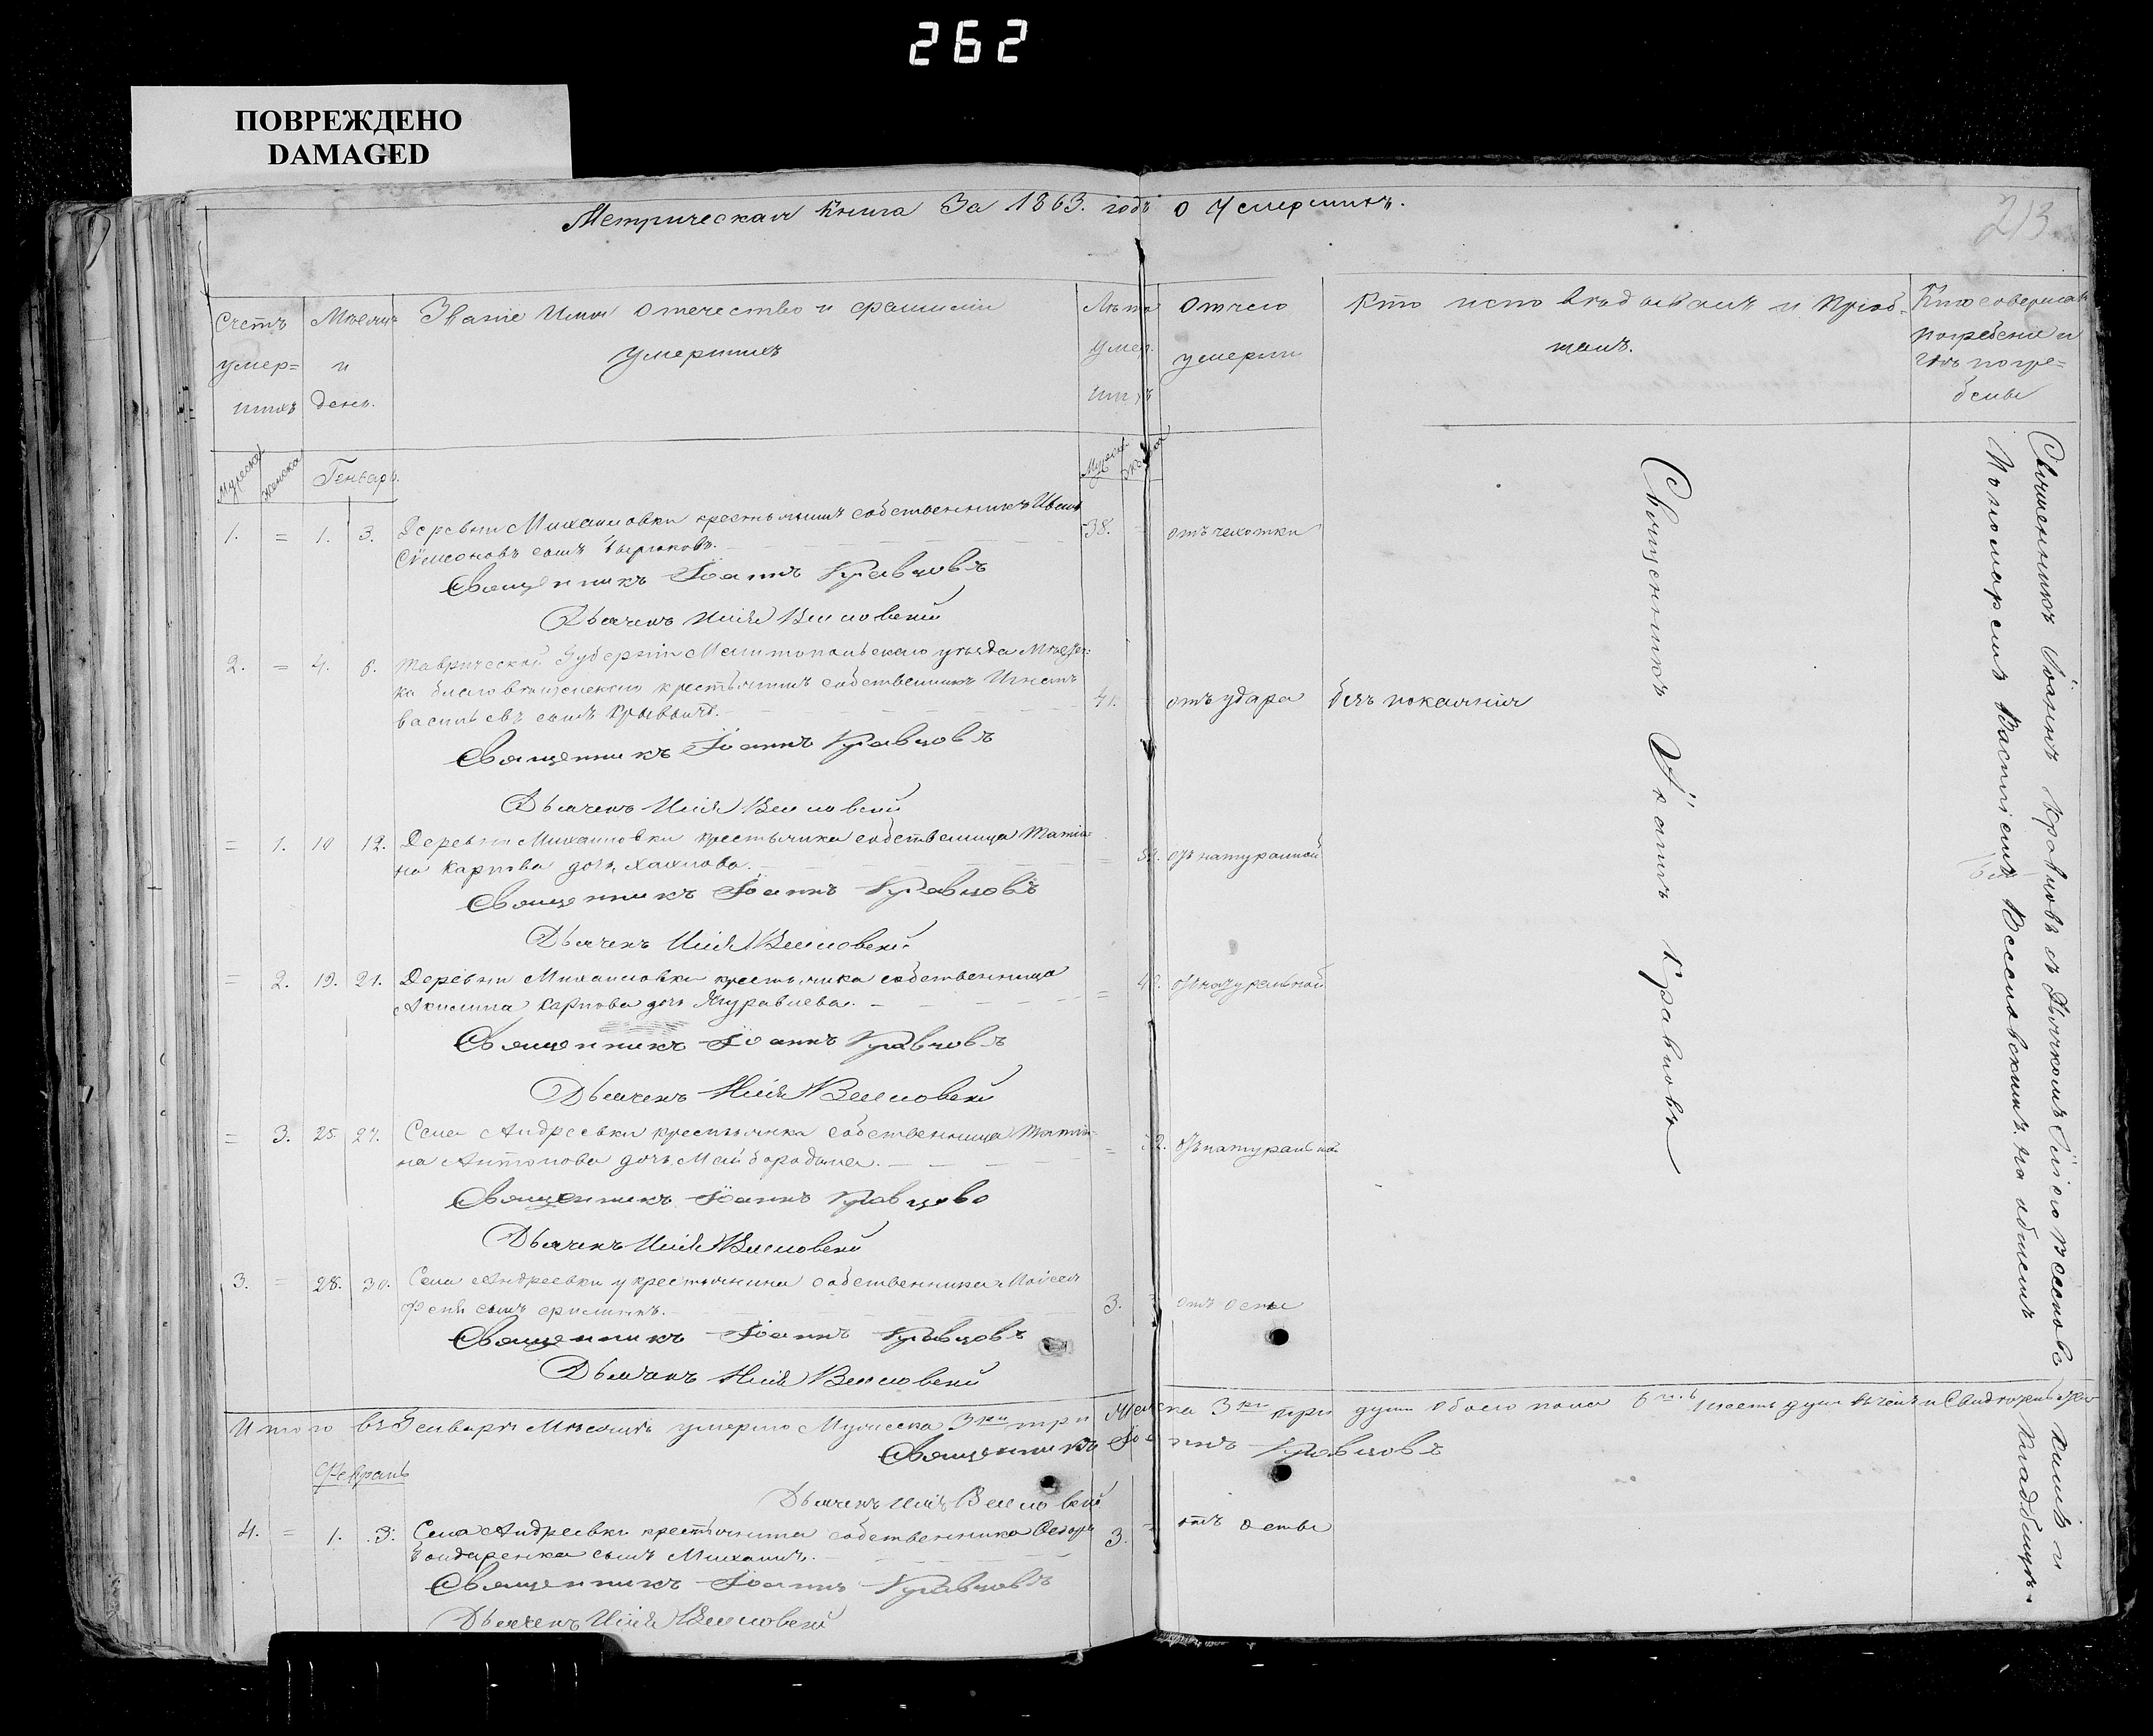 262
ПОВРЕЖДЕНО
DAMAGED
Метрическая Книга За 1863. годъ о Умершихъ.
213
Счетъ умер= шихъ
Мѣсяцъ и день.
Званіе Имя отечество и фамилія умершихъ
Лѣта умер. шихъ
отчего умерли
Кто исповѣдывалъ и пріоб- щалъ.
Кто совершалъ погребеніе и гдѣ погре= бены
Мужеска Женска
Генварь.
Мужеска
1. = 1. 3. Деревни Михайловки крестьянинъ собственникъ Иванъ 38. отъ чахотки
Симеоновъ сынъ
Священникъ Іоаннъ Кравцовъ
Дьячекъ Илія Веселовскій
2. = 4. 6. Таврической Губерніи Мелитопольскаго уѣзда Мѣстеч=
ка благовѣщенскаго крестьянинъ собственникъ Игнатъ 41. отъ удара безъ покаянія
васильевъ сынъ
Священникъ Іоаннъ Кравцовъ
Дьячекъ Илія Веселовскій
= 1. 10 12. Деревни Михайловки крестьянка собственница Татія=
на Карпова дочь Хахлова. отъ натуральной
Священникъ Іоаннъ Кравцовъ
Дьячекъ Илія Веселовскій
= 2. 19. 21. Деревни Михайловки крестьянка собственница
Акилина Карпова дочь Журавлева. = отъ натуральной
Священникъ Іоаннъ Кравцовъ
Дьячекъ Илія Веселовскій
= 3. 25. 27. Села Андреевки крестьянка собственница Татія=
на Антонова дочь Майбородина. = отъ натуральной
Священникъ Іоаннъ Кравцовъ
Дьячекъ Илія Веселовскій
3. = 28. 30. Села Андреевки у крестьянина собственника Моисея
сынъ 3. отъ оспы
Священникъ Іоаннъ Кравцовъ
Дьячекъ Илія Веселовскій
Итого въ Генварѣ Мѣсяцѣ умерло Мужеска 3 три Женска 3 три души обоего пола 6 шесть душъ въ чемъ и Свидѣтельствуемъ
Священникъ Іоаннъ Кравцовъ
Февраль
Дьячекъ Илія Веселовскій
4. = 1. 3. Села Андреевки крестьянина собственника Федора 3. отъ оспы
Бондаренка сынъ Михаилъ.
Священникъ Іоаннъ Кравцовъ
Дьячекъ Илія Веселовскій
Священникъ Іоаннъ Кравцовъ
Священникъ Іоаннъ Кравцовъ съ Дьячкомъ Иліею Веселовскимъ и
Пономаремъ Василіемъ Веселовскимъ на общемъ Кладбищѣ.